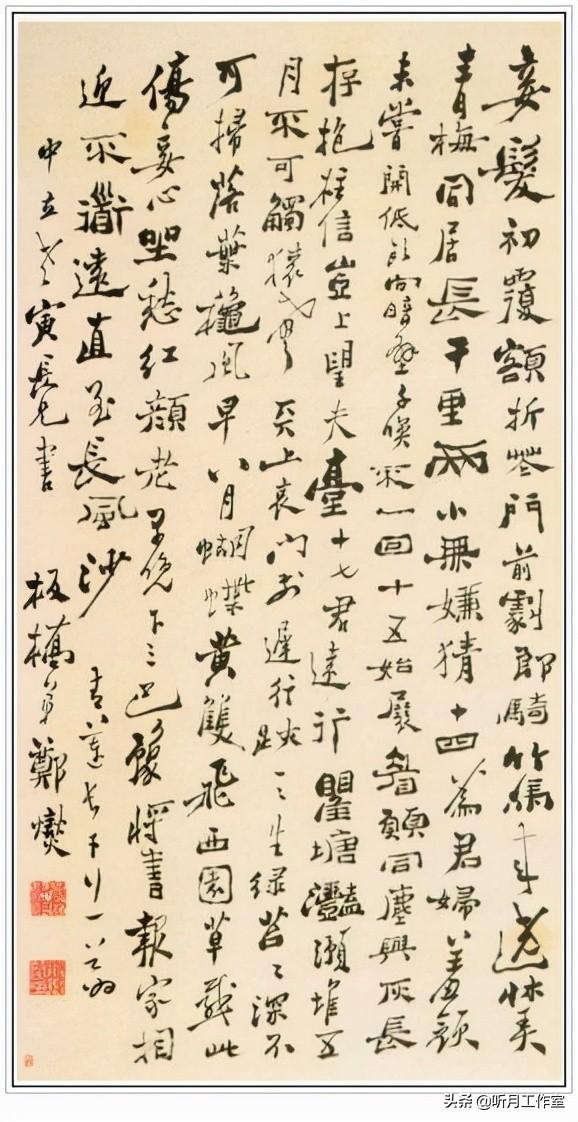 妾髮初覆額折花門前劇郎騎竹馬來遶牀弄
青梅同居長干里兩小無嫌猜十四爲君婦羞顔
未嘗開低頭向暗壁千喚不一回十五始展眉願同塵與灰長
存抱柱信豈上望夫臺十六君遠行瞿塘灩澦堆五
月不可觸猿聲天上哀門前遲行跡一一生緑苔苔深不
可掃落葉龝風早八月蝴蝶黃雙飛西園草感此
傷妾心坐愁紅顔老早晚下三巴豫將書報家相
迎不道遠直至長風沙 青蓮長干行一首爲
中立老寅長兄書 板橋弟鄭燮
头条 @听月工作室